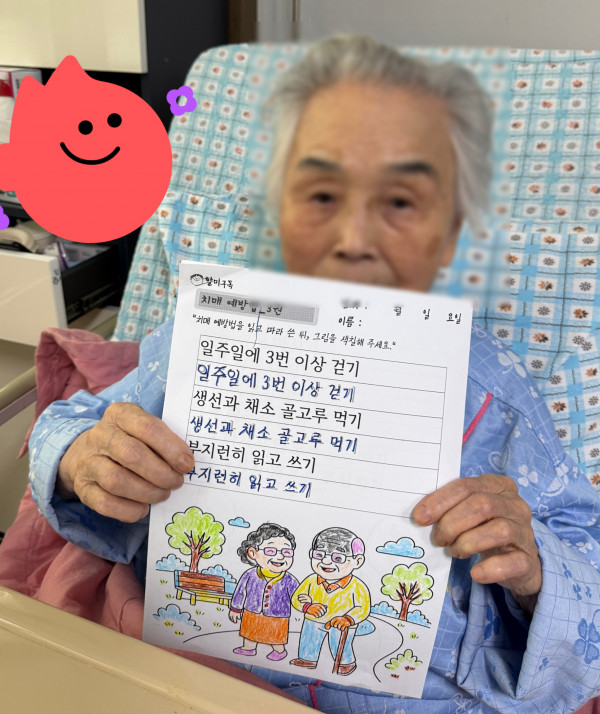 할미구독
치매 예방 3건
월 일 요일
이름 :
"치매 예방법을 읽고 따라 쓴 뒤, 그림을 색칠해 주세요."
일주일에 3번 이상 걷기
일주일에 3번 이상 걷기
생선과 채소 골고루 먹기
생선과 채소 골고루 먹기
부지런히 읽고 쓰기
부지런히 읽고 쓰기